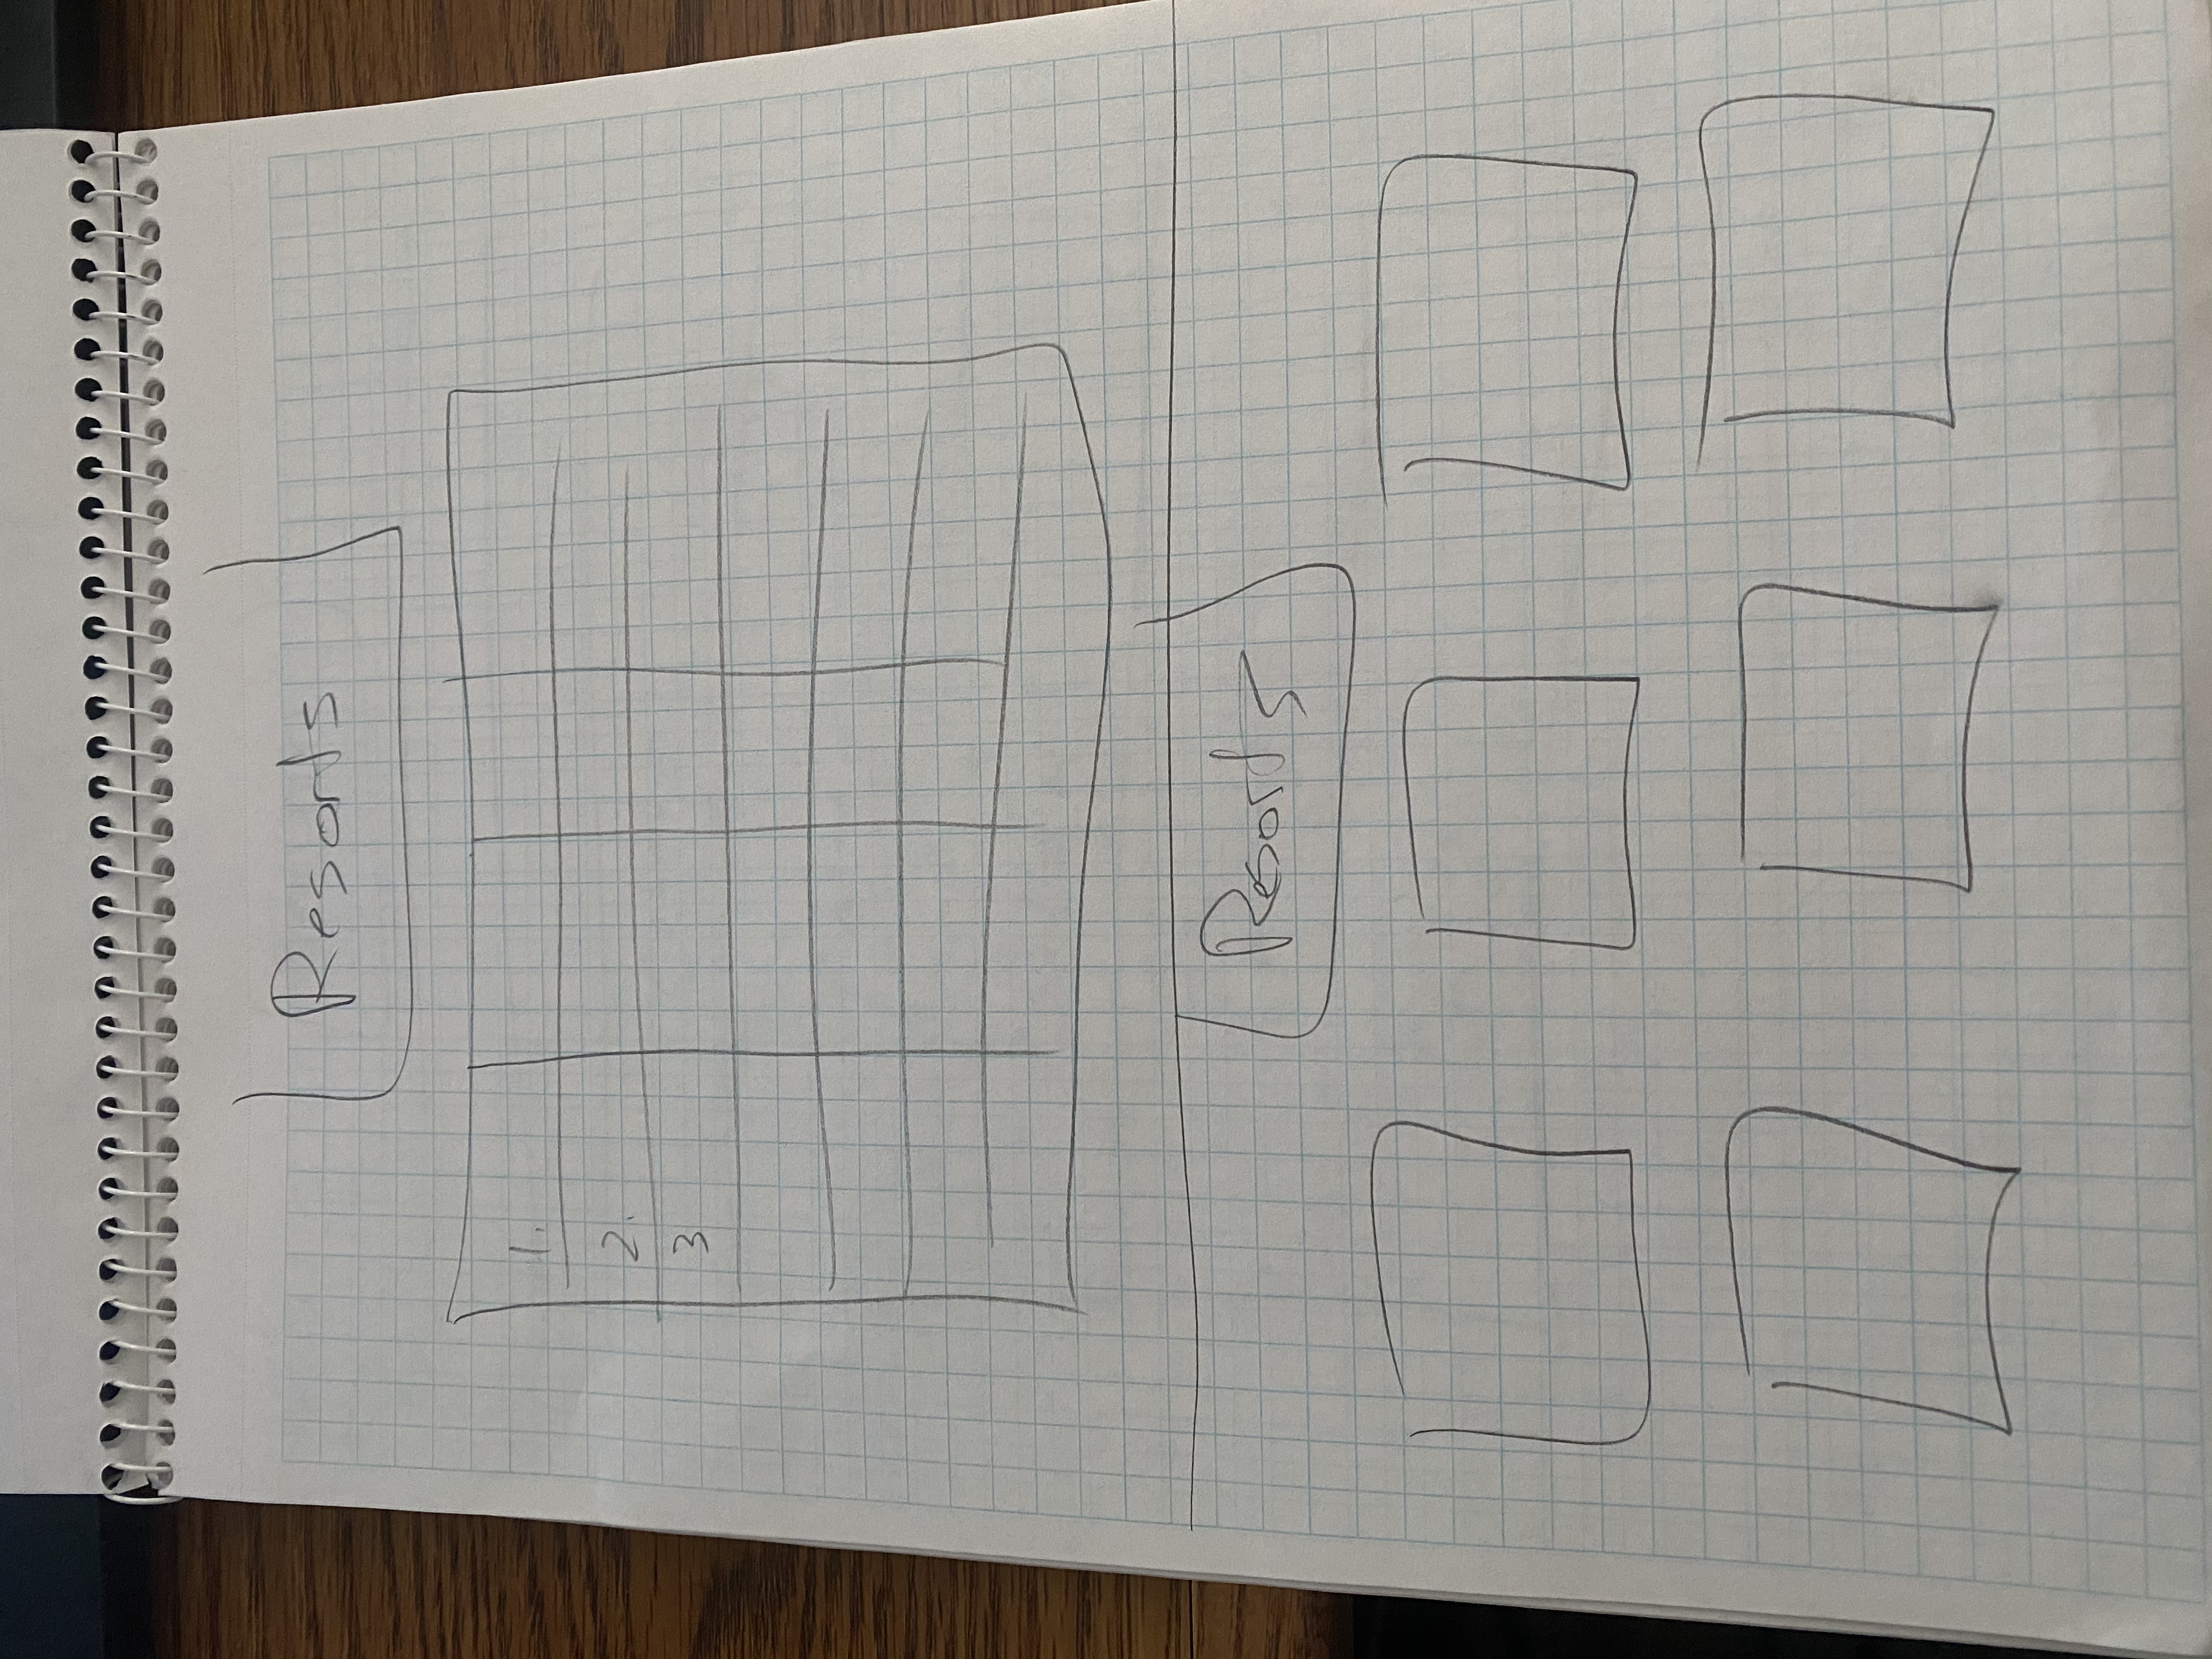 Resorts
1.
2.
3
Resorts